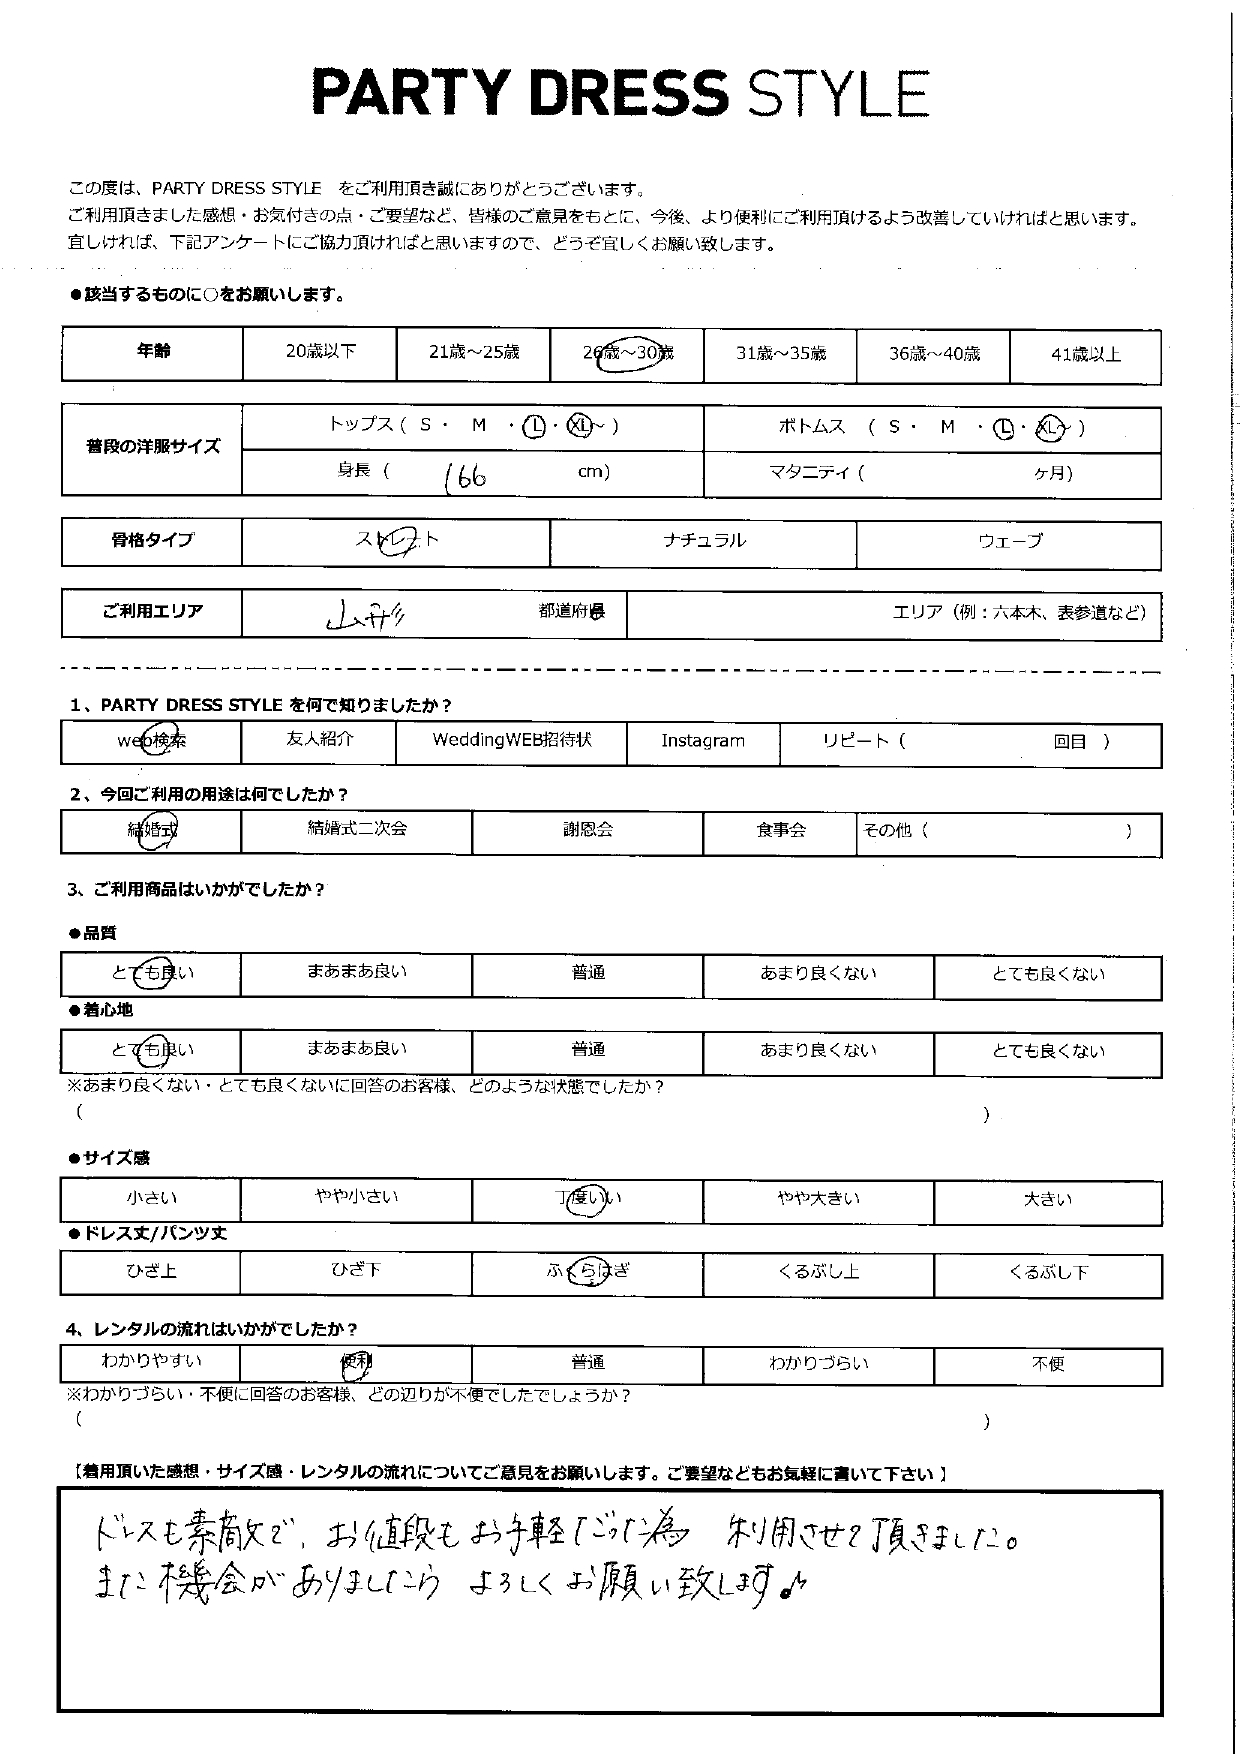 PARTY DRESS STYLE
この度は、PARTY DRESS STYLE をご利用頂き誠にありがとうございます。
ご利用頂きました感想・お気付きの点・ご要望など、皆様のご意見をもとに、今後、より便利にご利用頂けるよう改善していければと思います。
宜しければ、下記アンケートにご協力頂ければと思いますので、どうぞ宜しくお願い致します。
●該当するものに○をお願いします。
年齢 20歳以下 21歳～25歳 26歳～30歳 31歳～35歳 36歳～40歳 41歳以上
普段の洋服サイズ トップス ( S ・ M ・ L ・ XL～ ) ボトムス ( S ・ M ・ L ・ XL～ )
身長 ( 166 cm) マタニティ ( ヶ月)
骨格タイプ ストレート ナチュラル ウェーブ
ご利用エリア 山形 都道府県 エリア (例：六本木、表参道など)
1、PARTY DRESS STYLE を何で知りましたか？
web検索 友人紹介 WeddingWEB招待状 Instagram リピート ( 回目 )
2、今回ご利用の用途は何でしたか？
結婚式 結婚式二次会 謝恩会 食事会 その他 ( )
3、ご利用商品はいかがでしたか？
●品質
とても良い まあまあ良い 普通 あまり良くない とても良くない
●着心地
とても良い まあまあ良い 普通 あまり良くない とても良くない
※あまり良くない・とても良くないに回答のお客様、どのような状態でしたか？
( )
●サイズ感
小さい やや小さい 丁度いい やや大きい 大きい
●ドレス丈/パンツ丈
ひざ上 ひざ下 ふくらはぎ くるぶし上 くるぶし下
4、レンタルの流れはいかがでしたか？
わかりやすい 便利 普通 わかりづらい 不便
※わかりづらい・不便に回答のお客様、どの辺りが不便でしたでしょうか？
( )
【着用頂いた感想・サイズ感・レンタルの流れについてご意見をお願いします。ご要望などもお気軽に書いて下さい】
ドレスも素敵で、お値段もお手軽だった為 利用させて頂きました。
また機会がありましたら よろしくお願い致します♪